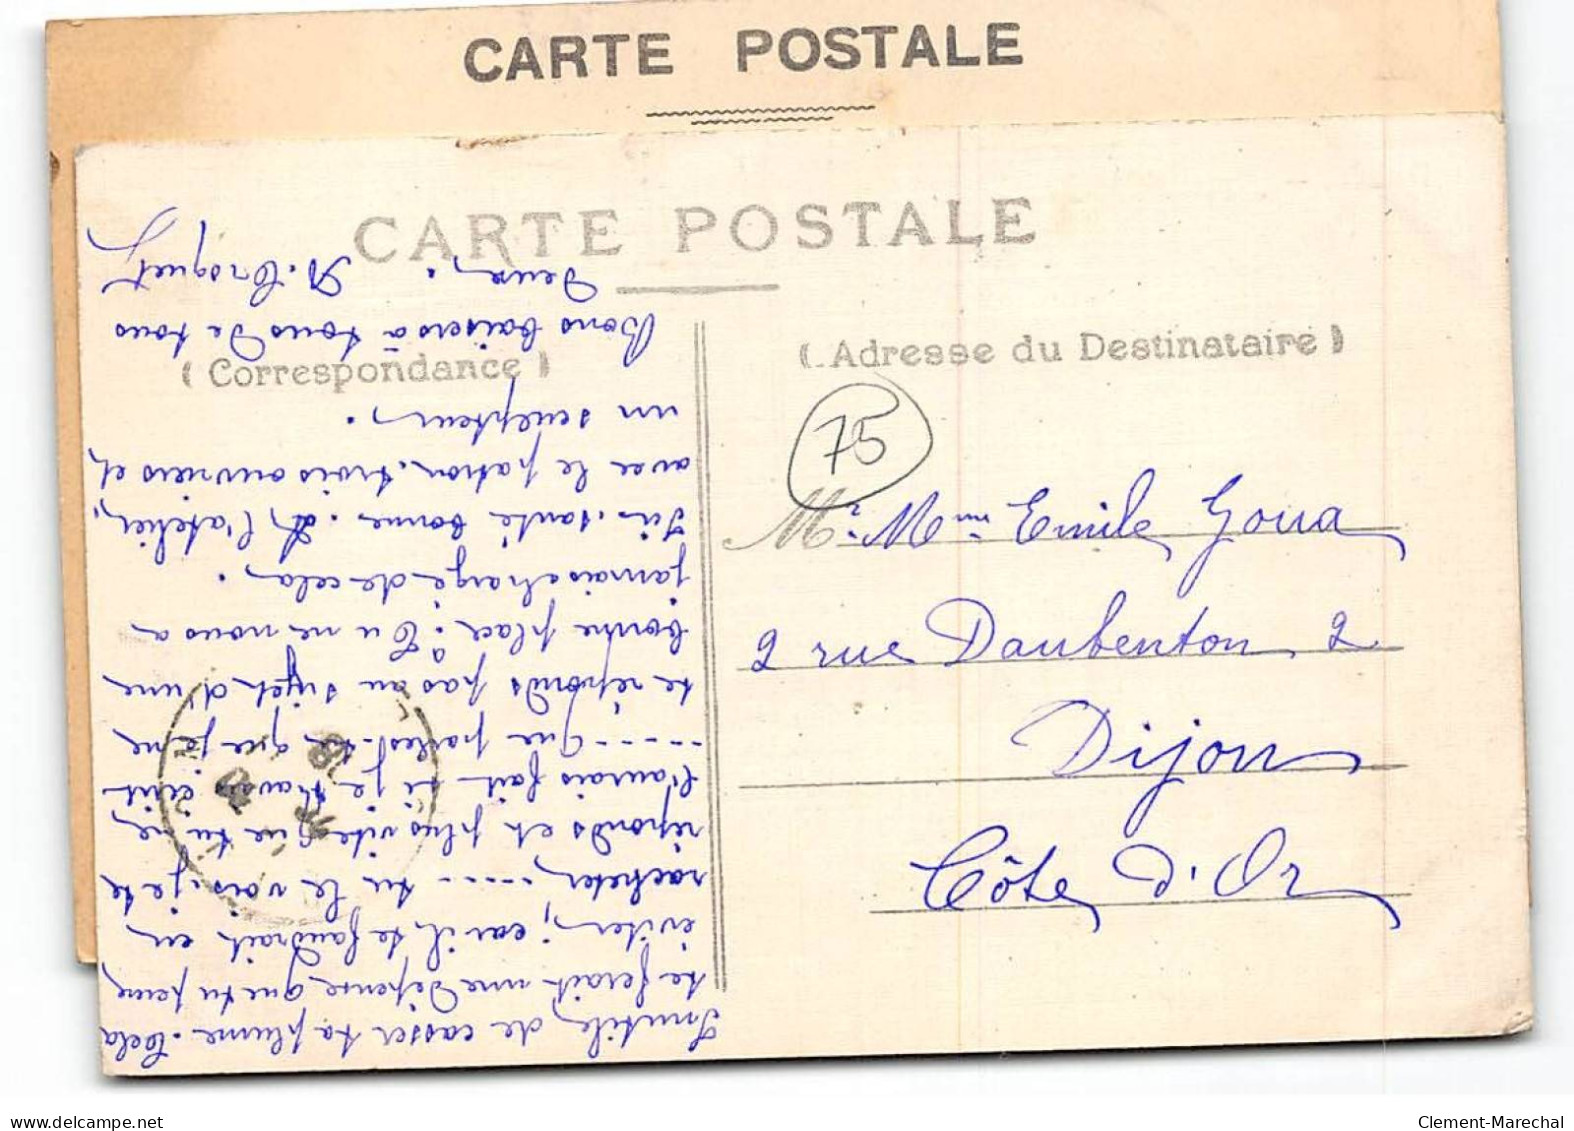 CARTE POSTALE
CARTE POSTALE
(Correspondance)
(Adresse du Destinataire)
75
Mr. Mme Emile Goua
2 rue Daubenton 2
Dijon
Côte d'Or
Inutile de casser ta plume. Cela
te ferait une dépense que tu peux
éviter, car il te faudrait en
racheter ----- tu le vois, je te
réponds et plus vite que tu ne
l'aurais fait si je t'avais écrit
----- que parles-tu que je ne
te réponds pas au sujet d'une
bonne place. Tu ne nous a
jamais chargé de cela.
Ici, santé bonne. A l'atelier,
avec le patron, trois ouvriers et
un sculpteur.
Bons baisers à tous de tous
deux. A. Croquet
www.delcampe.net
Clement-Marechal